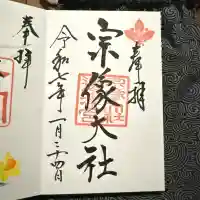 奉拝
宗像大社
令和七年一月二十四日
奉拝